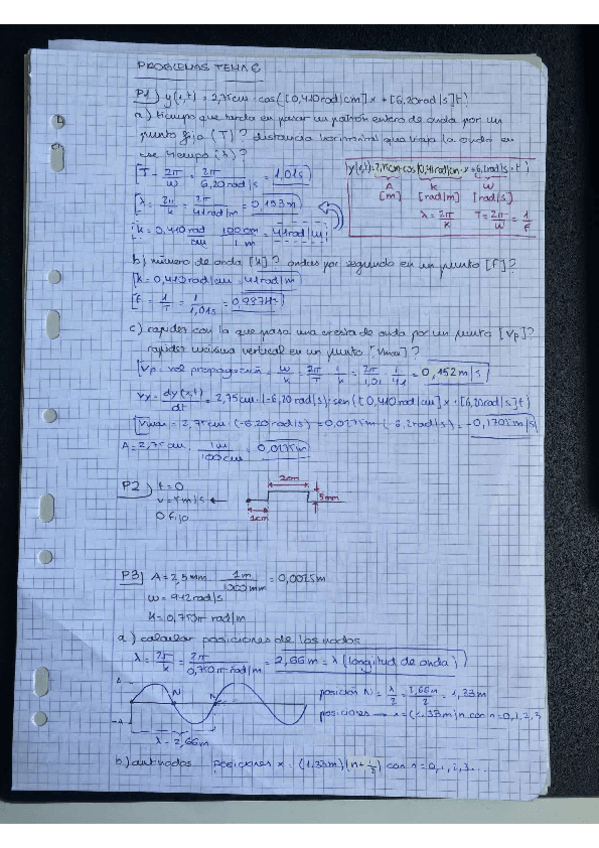 PROBLEMAS TEMA 6
P1) y(x,t) = 2,75cm · cos([0,410rad/cm]x + [6,20rad/s]t)
a) tiempo que tarda en pasar un patrón entero de onda por un
punto fijo (T)? distancia horizontal que viaja la onda en
ese tiempo (λ)?
T = 2π/W = 2π/6,20rad/s = 1,01s
y(x,t)=2,75cm·cos(0,41rad/cm·x+6,2rad/s·t)
A k W
[m] [rad/m] [rad/s]
λ = 2π/K T = 2π/W = 1/f
λ = 2π/k = 2π/41rad/m = 0,153m
k = 0,410 rad/cm · 100cm/1m = 41rad/m
b) número de onda [k]? ondas por segundo en un punto [f]?
k = 0,410rad/cm = 41rad/m
f = 1/T = 1/1,01s = 0,987Hz
c) rapidez con la que pasa una cresta de onda por un punto [Vp]?
rapidez máxima vertical en un punto [Vmax]?
Vp = vel propagación = w/k = 2π/T · 1/k = 2π/1,01 · 1/41 = 0,152m/s
Vy = dy(x,t)/dt = 2,75cm·(-6,20rad/s)·sen([0,410rad/cm]x + [6,20rad/s]t)
Vmax = 2,75cm·(-6,20rad/s) = 0,0275m·(-6,2rad/s) = -0,1705m/s
A = 2,75cm · 1m/100cm = 0,0275m
P2) t=0
2cm
5mm
1cm
P3) A = 2,5mm · 1m/1000mm = 0,0025m
W = 942rad/s
K = 0,750π rad/m
a) calcular posiciones de los nodos
λ = 2π/k = 2π/0,750π rad/m = 2,66m = λ (longitud de onda)
A
N
-A
posición N = λ/2 = 2,66m/2 = 1,33m
posiciones → x = (1,33m)n con n=0,1,2,3
λ = 2,66m
b) antinodos posiciones x = (1,33m)(n+1/2) con n=0,1,2,3...